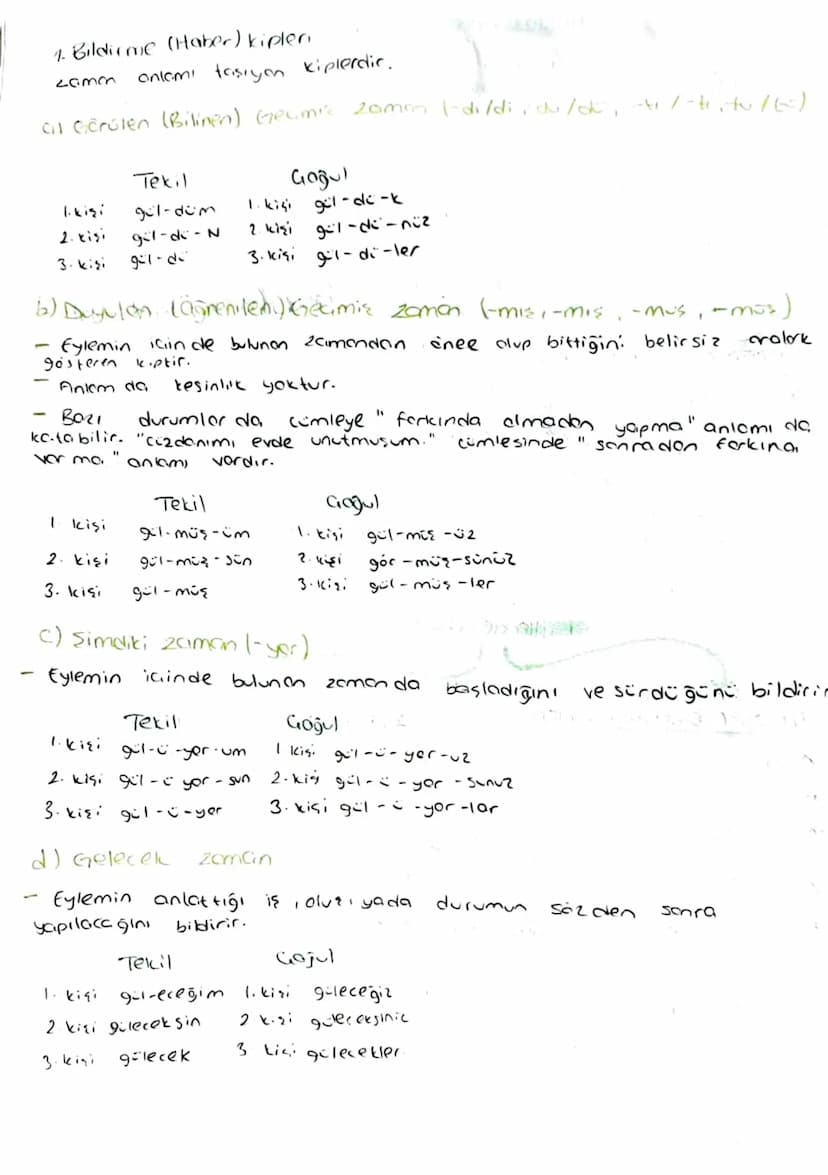 1. Bildirme (Haber) kipleri
zaman anlamı taşıyan kiplerdir.
a) Görülen (Bilinen) Geçmiş zaman (-dı/di, du/dü, -tı/-ti, tu/tü)
Tekil Çoğul
1. kişi gül-düm 1. kişi gül-dü-k
2. kişi gül-dü-N 2 kişi gül-dü-nüz
3. kişi gül-dü 3. kişi gül-dü-ler
b) Duyulan (Öğrenilen) Geçmiş zaman (-mış, -miş, -muş, -müş)
- Eylemin içinde bulunan zamandan önce olup bittiğini belirsiz olarak
gösteren kiptir.
- Anlam da kesinlik yoktur.
- Bazı durumlar da cümleye "farkında olmadan yapma" anlamı da
katabilir. "Cüzdanımı evde unutmuşum." cümlesinde "sonradan farkına
varma" anlamı vardır.
Tekil Çoğul
1 kişi gül-müş-üm 1. kişi gül-müş-üz
2. kişi gül-müş-sün 2. kişi gör-müş-sünüz
3. kişi gül-müş 3. kişi gül-müş-ler
c) Şimdiki zaman (-yor)
- Eylemin içinde bulunan zaman da başladığını ve sürdüğünü bildirir
Tekil Çoğul
1. kişi gül-ü-yor-um 1 kişi gül-ü-yor-uz
2. kişi gül-ü yor-sun 2. kişi gül-ü-yor-sunuz
3. kişi gül-ü-yor 3. kişi gül-ü-yor-lar
d) Gelecek zaman
- Eylemin anlattığı iş, oluş, yada durumun sözden sonra
yapılacağını bildirir.
Tekil Çoğul
1. kişi gül-eceğim 1. kişi güleceğiz
2 kişi güleceksin 2 kişi güleceksiniz
3. kişi gülecek 3 kişi gülecekler